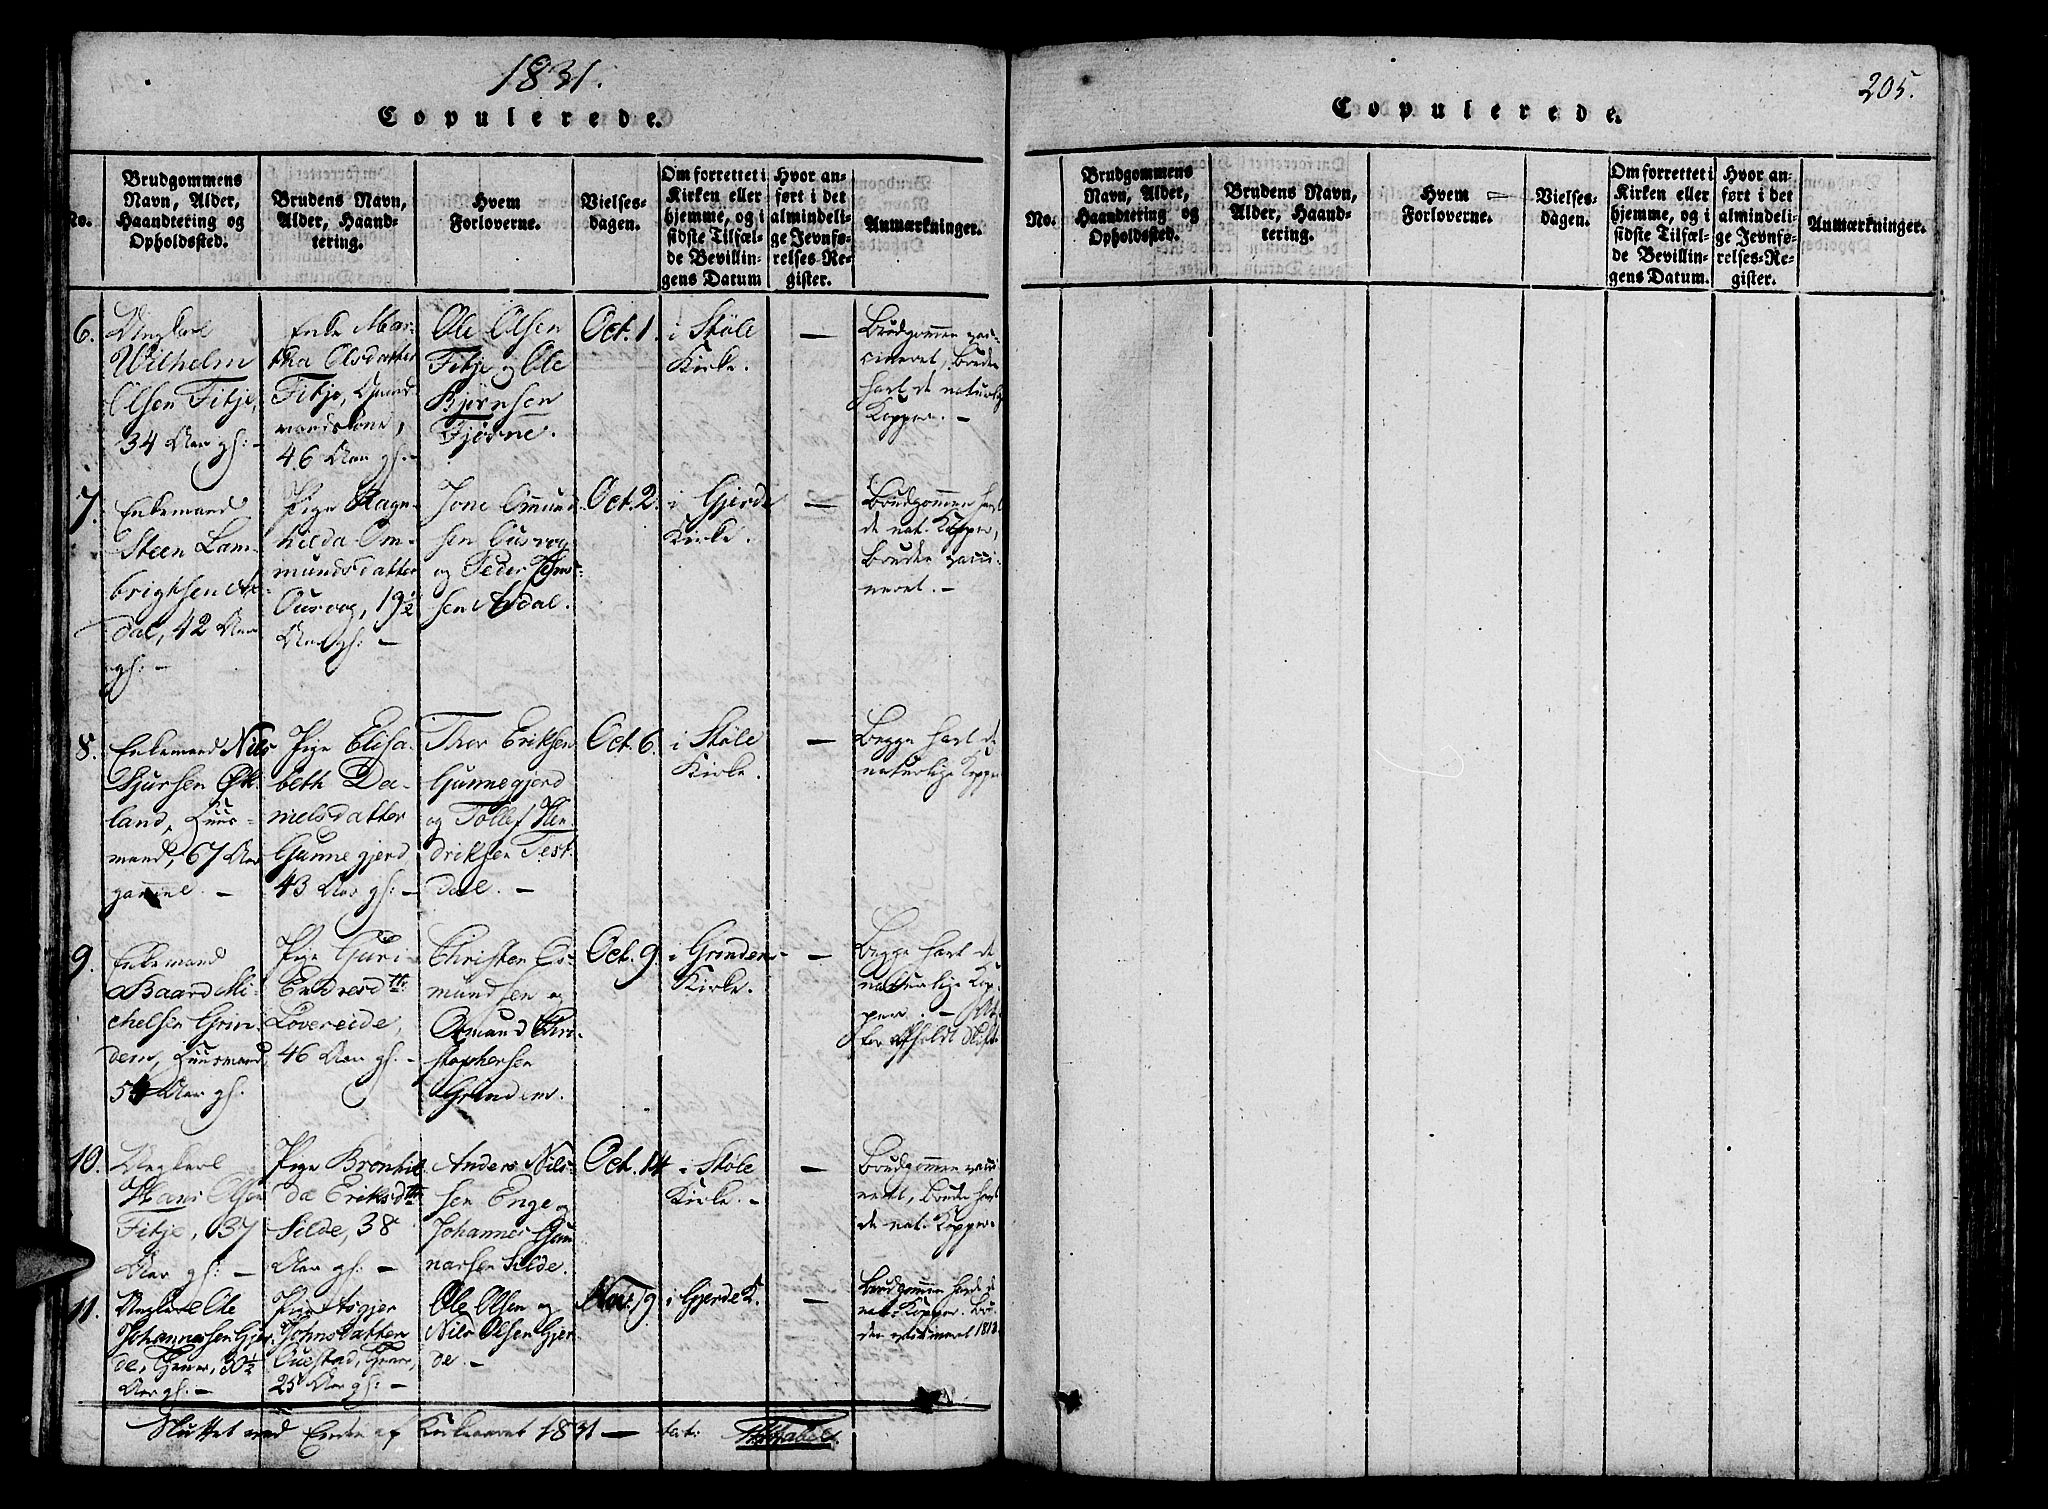 1831.
Copulerede.
No.
Brudgommens
Navn, Alder,
Haandtering og
Opholdssted.
Brudens Navn,
Alder, Haand-
tering.
Hvem
Forloverne.
Vielses-
dagen.
Om forrettet i
Kirken eller
hjemme, og i
sidste Tilfæl-
de Bevillin-
gens Datum
Hvor an-
ført i det
almindeli-
ge Jevnfø-
relses-Re-
gister.
Anmærkninger.
6.
Ungkarl
Wilhelm
Olsen Fitje,
34 Aar gl: -
Enke Mar-
tha Olsdatter
Fitje, Gaard-
mandskone,
46 Aar gl. -
Ole Olsen
Fitje og Ole
Bjørnsen
Fjørne.
Oct. 1.
i Støle
Kirke.
-
Brudgommen vac-
cineret, Bruden
havt de naturlig
Kopper. -
7.
Enkemand
Steen Lam-
brigtsen Ar-
dal, 42 Aar
gl: -
Pige Ragn-
hilda Om-
mundsdatter
Ousvog, 19½
Aar gl: -
Jone Omund-
sen Ousvog
og Peder
sen Ardal.
Oct. 2.
i Gjerde
Kirke.
-
Brudgommen havt
de nat. Kopper,
Bruden vacci-
neret. -
8.
Enkemand Nils
Sjursen Øk-
land, Huus-
mand, 67 Aar
gammel. -
Pige Elisa-
beth Da-
nielsdatter
Gunnegjerd
43 Aar gl: -
Thor Eriksen
Gunnegjerd
og Tollef Hen-
driksen Test-
dal. -
Oct. 6.
i Støle
Kirke.
-
Begge havt de
naturlige Kopper
9.
Enkemand
Baard Mi-
chelsen Grin-
dem, Huusmand,
54 Aar gl.
Pige Guri
Endresdtt:
Løvereide,
46 Aar gl. -
Christen Os-
mundsen og
Osmund Chri-
stophersen
Grindem.
Oct. 9.
i Grindem-
Kirke.
-
Begge havt de
naturlige Kop-
per. -
holdt Skifte
10.
Ungkarl
Hans Olsen
Fitje, 37
Aar gl: -
Pige Brønhil-
da Eriksdtt:
Silde, 38
Aar gl: -
Anders Nils-
sen Enge og
Johannes Gun-
narsen Silde.
Oct. 14
i Støle
Kirke. -
-
Brudgommen vacci-
neret, Bruden havt
de nat. Kopper.
11.
Ungkarl Ole
Johannessen Gjer-
de, 30½
Aar gl: -
Pige Asgjer
Johnsdatter
25 Aar gl: -
Ole Olsen og
Nils Olsen Gjer-
de. -
Nov. 9.
i Gjerde K.
-
Brudgommen havt de
nat. Kopper. Bru-
den
Sluttet ved Enden af Kirkeaaret 1831 -
205.
Copulerede.
No.
Brudgommens
Navn, Alder,
Haandtering og
Opholdssted.
Brudens Navn,
Alder, Haand-
tering.
Hvem
Forloverne.
Vielses-
dagen.
Om forrettet i
Kirken eller
hjemme, og i
sidste Tilfæl-
de Bevillin-
gens Datum.
Hvor an-
ført i det
almindeli-
ge Jevnfø-
relses-Re-
gister.
Anmærkninger.